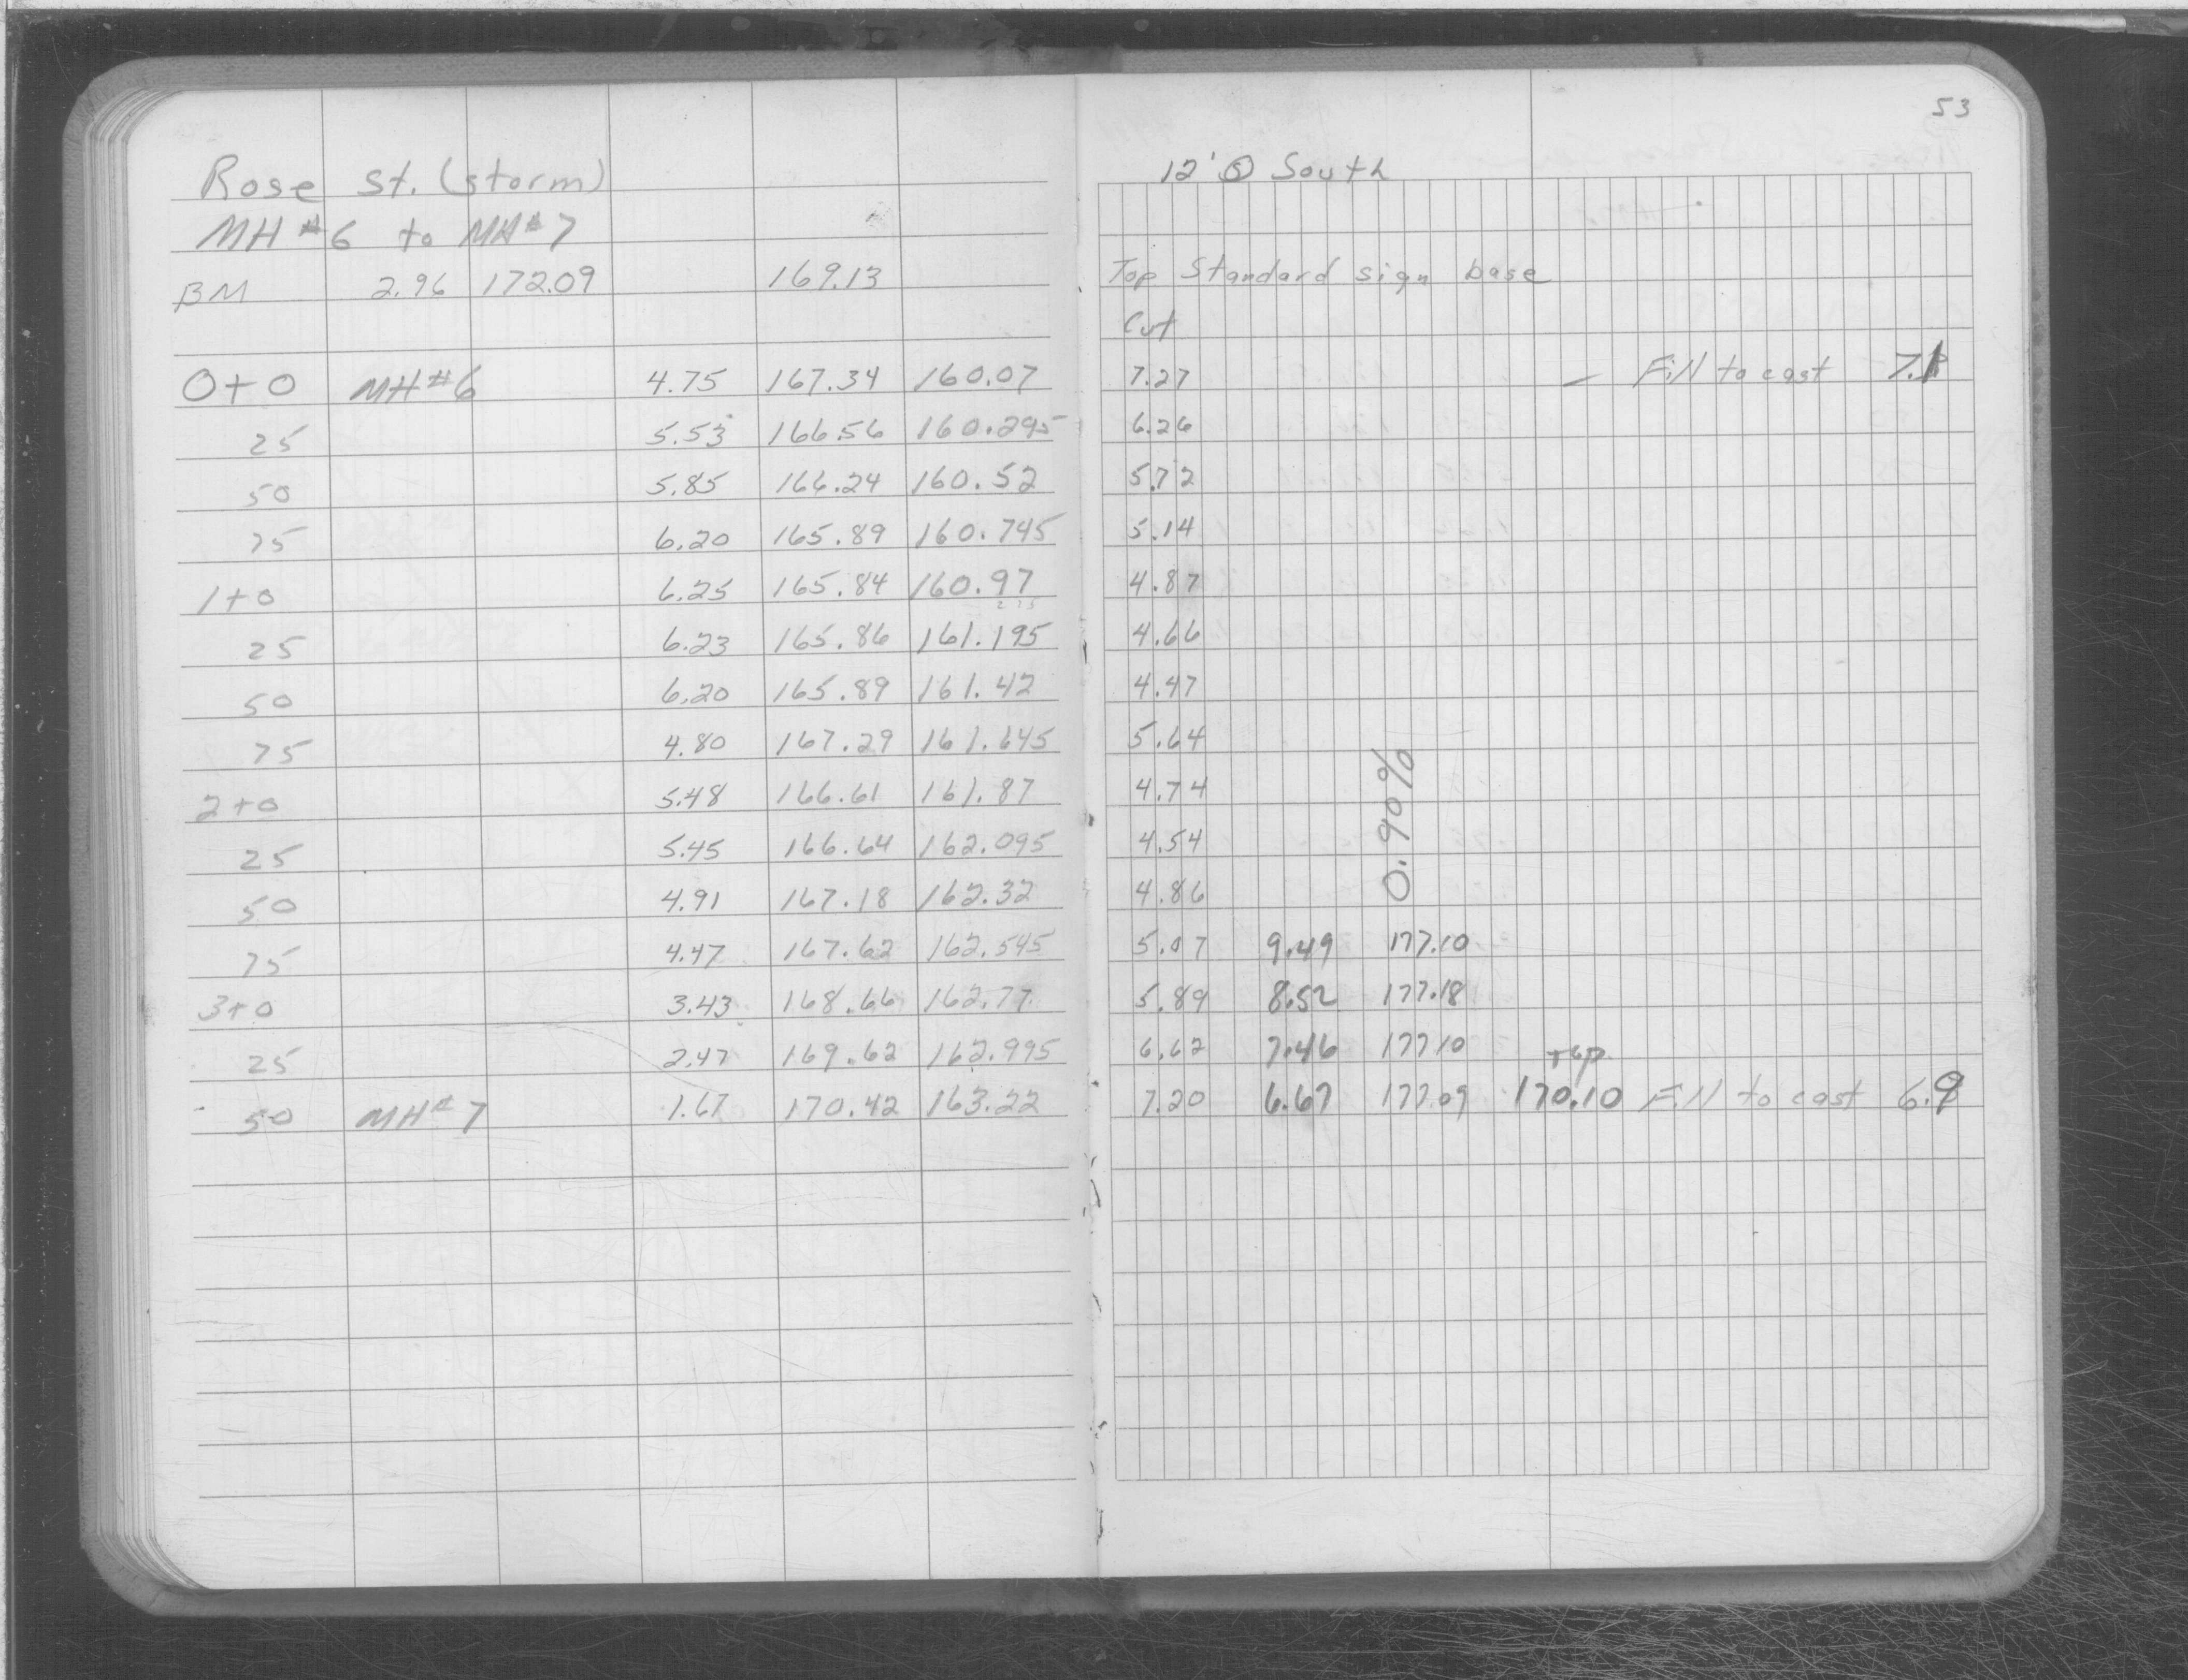 53
Rose St. (storm) 12' Ⓢ South
MH #6 to MH #7
BM 2.96 172.09 169.13 Top Standard sign base
Cut
0+0 MH #6 4.75 167.34 160.07 7.27 – Fill to cast
25 5.53 166.56 160.295 6.26
50 5.85 166.24 160.52 5.72
75 6.20 165.89 160.745 5.14
1+0 6.25 165.84 160.97 4.87
225
25 6.23 165.86 161.195 4.66
50 6.20 165.89 161.42 4.47
75 4.80 167.29 161.645 5.64
2+0 5.48 166.61 161.87 4.74
0.90%
25 5.45 166.64 162.095 4.54
50 4.91 167.18 162.32 4.86
75 4.47 167.62 162.545 5.07 9.49 177.10
3+0 3.43 168.66 162.77 5.89 8.52 177.18
25 2.47 169.62 162.995 6.62 7.46 177.10
Top
50 MH #7 1.67 170.42 163.22 7.20 6.67 177.09 170.10 Fill to cast 6.9